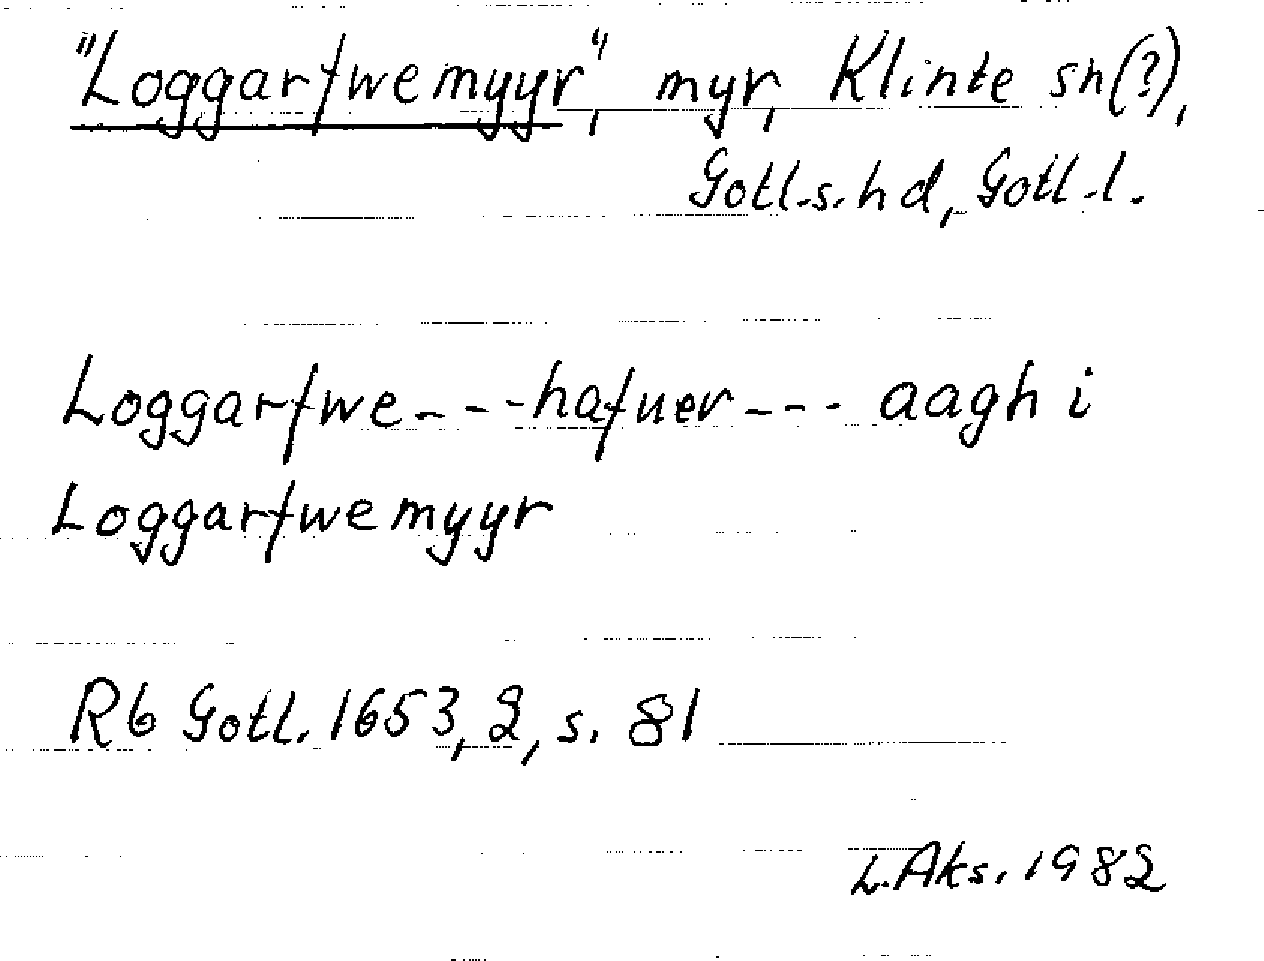 "Loggarfwemyyr", myr, Klinte sn(?),
Gotl.s.hd, Gotl.l.
Loggarfwe---hafuer---aagh i
Loggarfwemyyr
Rb Gotl. 1653,2, s. 81
L.Aks. 1982